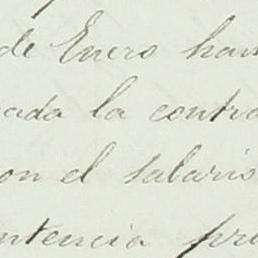 de Enero han
ada la contra
on el salario
ntencia pre